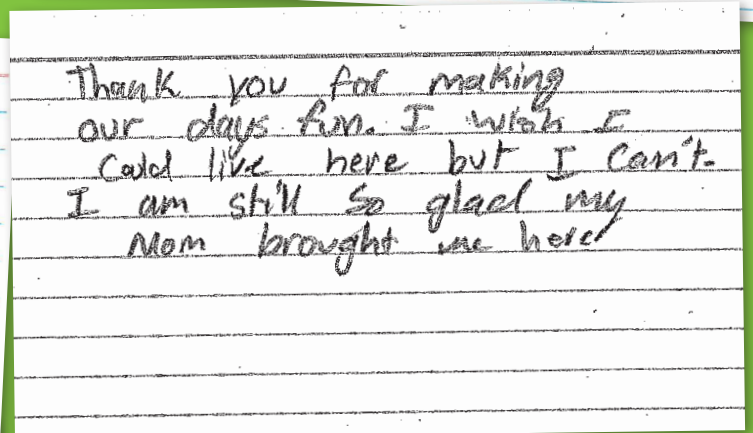 Thank you for making
our days fun. I wish I
Could live here but I Can't.
I am still so glad my
Mom brought me here